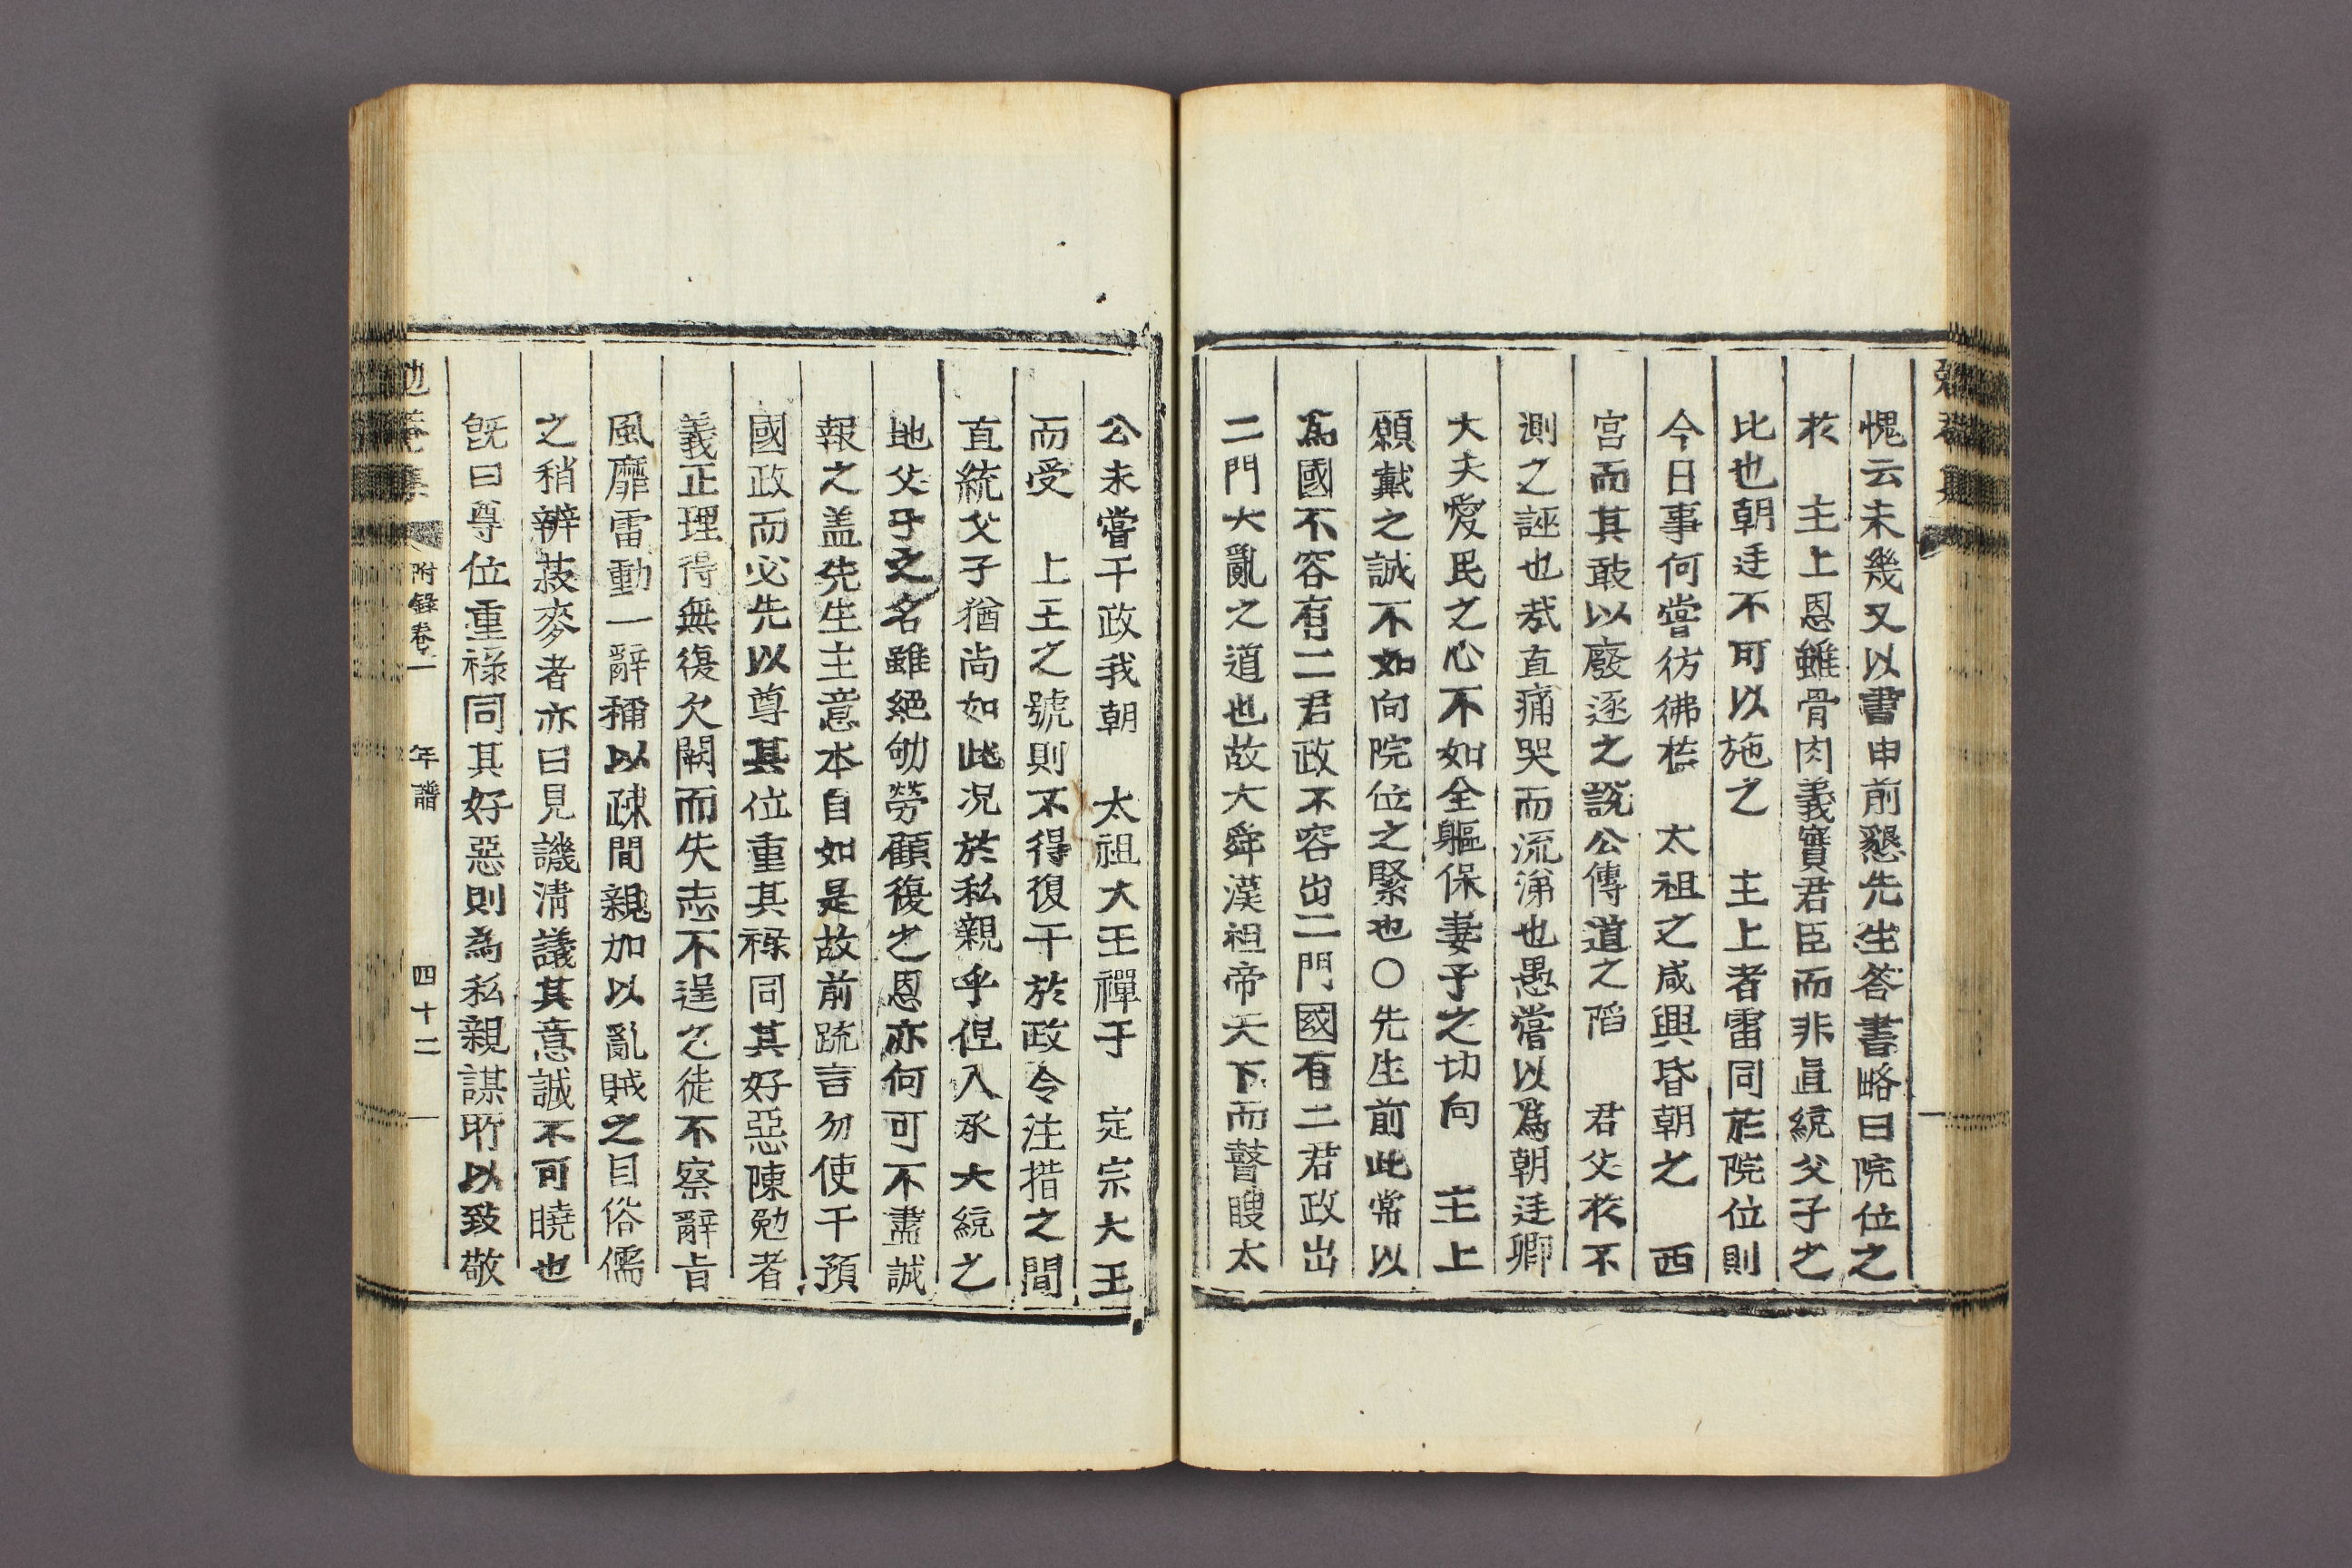 愧云未幾又以書申前懇先生答書略曰院位之
於　主上恩雖骨肉義實君臣而非直統父子之
比也朝廷不可以施之　主上者雷同於院位則
今日事何嘗彷彿於　太祖之咸興昏朝之　西
宮而其敢以廢逐之說公傳道之陷　君父於不
測之誣也哉直痛哭而流涕也愚嘗以爲朝廷卿
大夫愛民之心不如全軀保妻子之切向　主上
願戴之誠不如向院位之緊也〇先生前此常以
爲國不容有二君政不容出二門國有二君政出
二門大亂之道也故大舜漢祖帝天下而瞽瞍太
公未嘗干政我朝　太祖大王禪于　定宗大王
而受　上王之號則不得復干於政令注措之間
直統父子猶尙如此况於私親乎但入承大統之
地父子之名雖絕劬勞顧復之恩亦何可不盡誠
報之盖先生主意本自如是故前疏言勿使干預
國政而必先以尊其位重其祿同其好惡陳勉者
義正理得無復欠闕而失志不逞之徒不察辭旨
風靡雷動一辭稱以疎間親加以亂賊之目俗儒
之稍辨菽麥者亦曰見譏淸議其意誠不可曉也
旣曰尊位重祿同其好惡則為私親謀所以致敬
勉菴集　附錄卷一　年譜　四十二